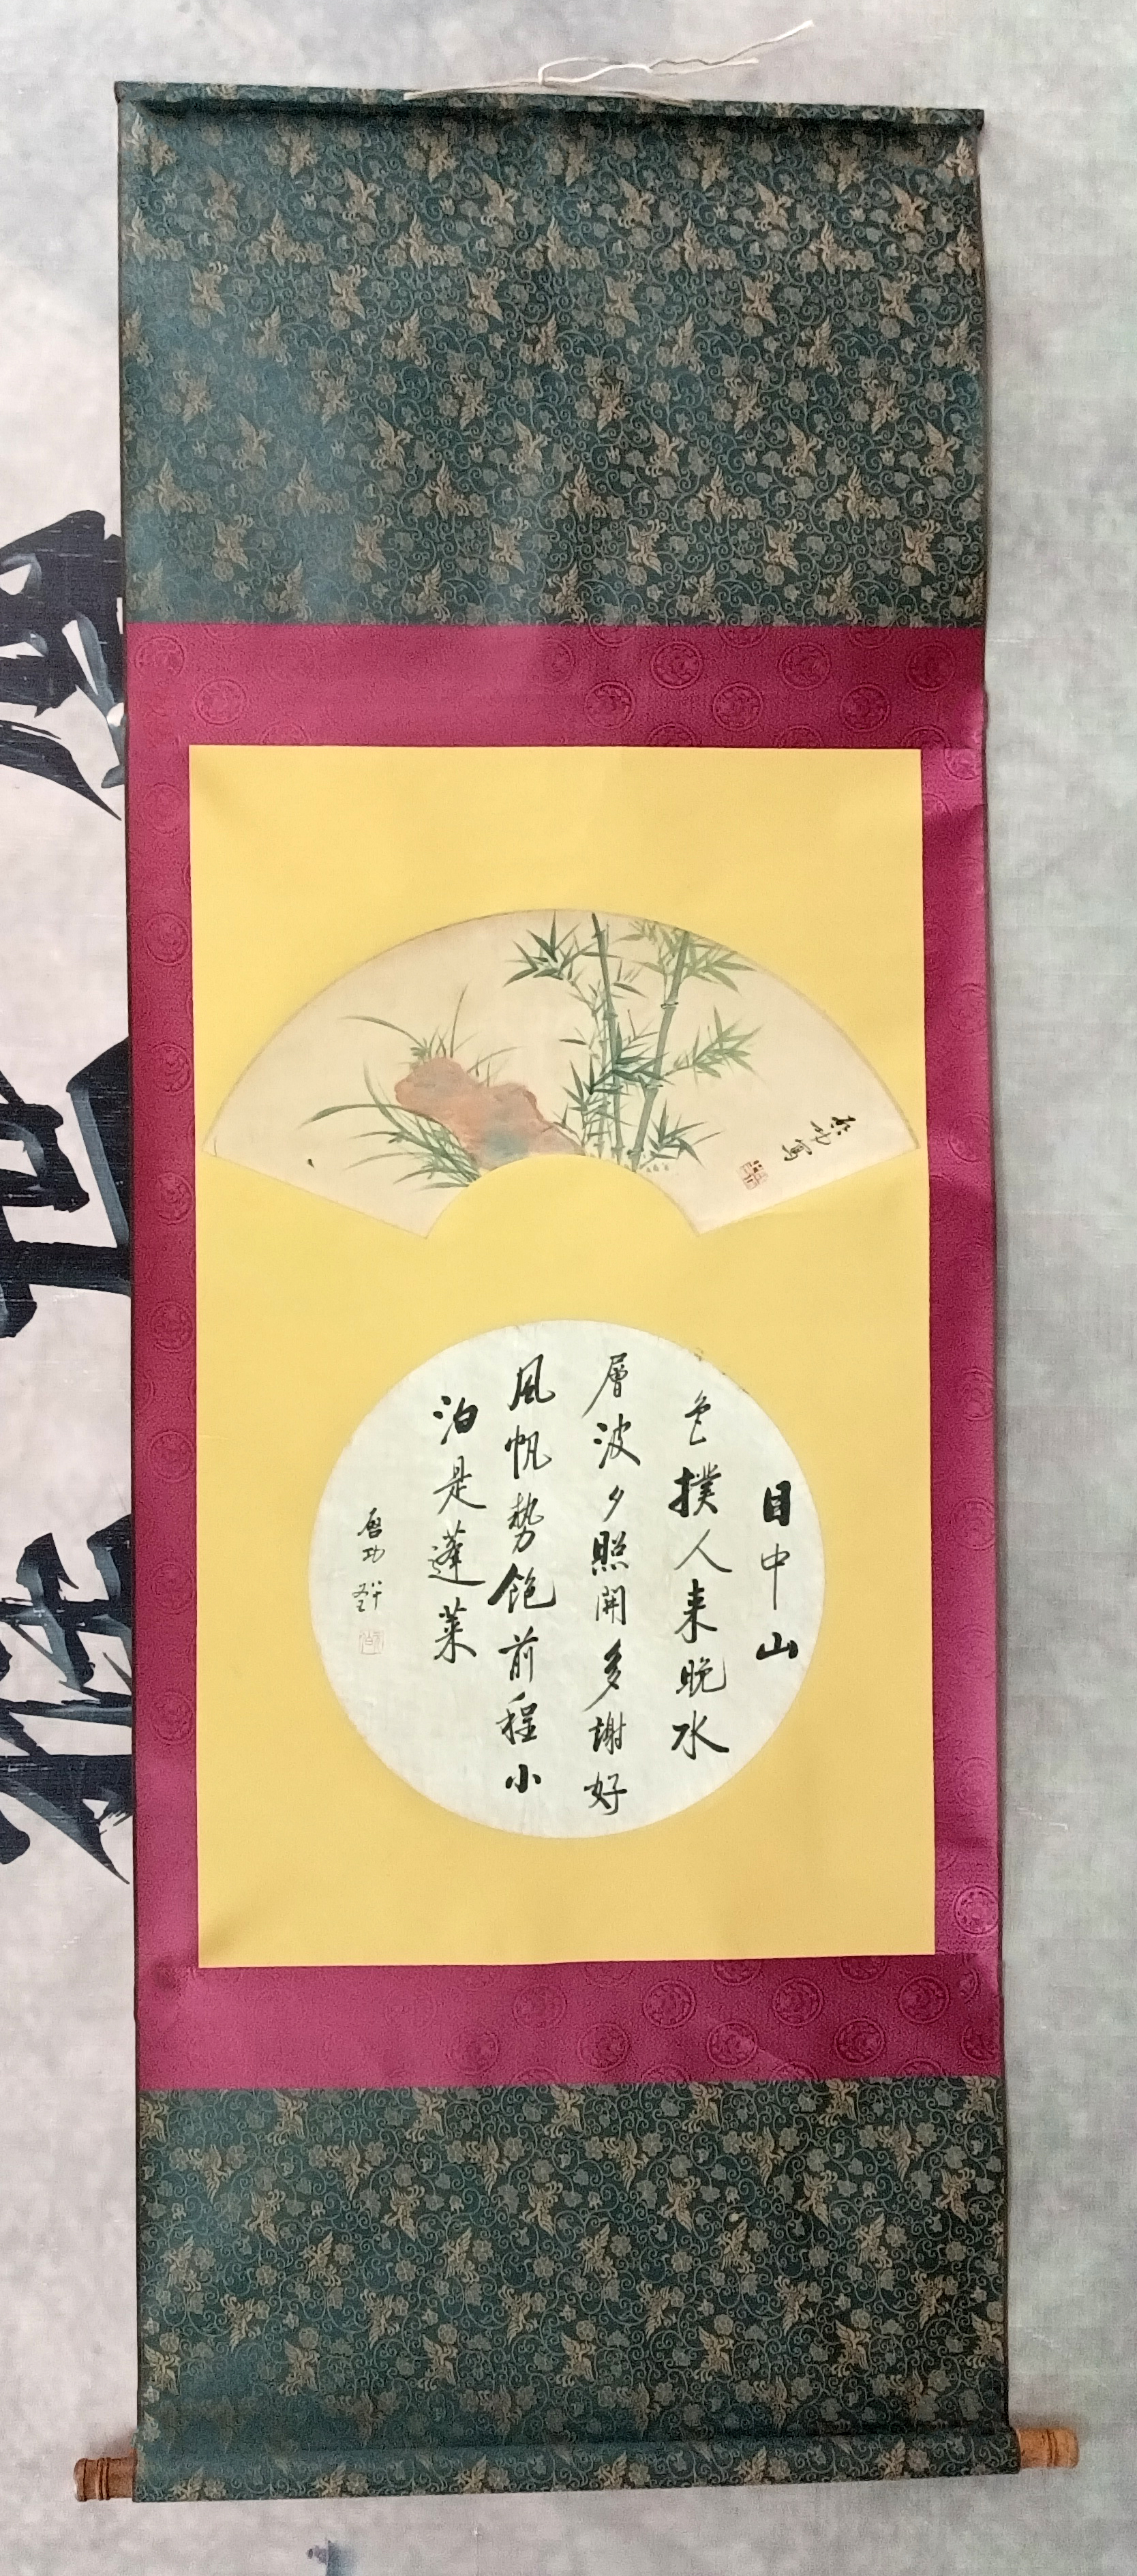 啓功寫
目中山
色撲人来晚水
層波夕照開多謝好
風帆勢飽前程小
泊是蓬萊
啓功